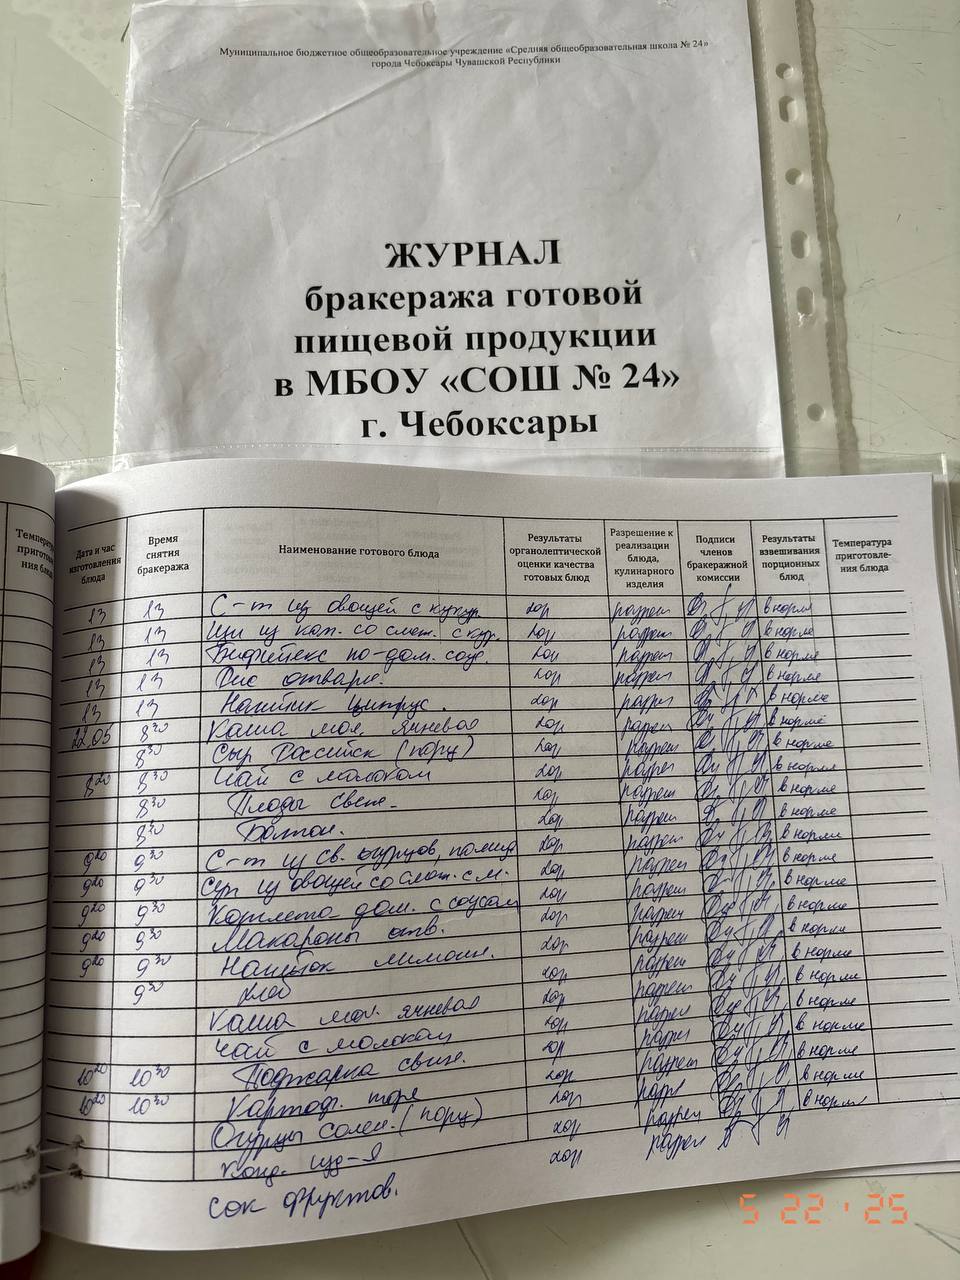 Муниципальное бюджетное общеобразовательное учреждение «Средняя общеобразовательная школа № 24»
города Чебоксары Чувашской Республики
ЖУРНАЛ
бракеража готовой
пищевой продукции
в МБОУ «СОШ № 24»
г. Чебоксары
Дата и час изготовления блюда Время снятия бракеража Наименование готового блюда Результаты органолептической оценки качества готовых блюд Разрешение к реализации блюда, кулинарного изделия Подписи членов бракеражной комиссии Результаты взвешивания порционных блюд Температура приготовле- ния блюда
13 13 С-т из овощей с кукур. хор разреш в норме
13 13 Щи из кап. со смет. с кур. хор разреш в норме
13 13 Бифштекс по-дом. соус. хор разреш в норме
13 13 Рис отварн. хор разреш в норме
13 13 Напиток цитрус. хор разреш в норме
22.05 8 30 Каша мол. ячневая хор разреш в норме
8 30 Сыр Российск (порц) хор разреш в норме
8 20 8 30 Чай с молоком хор разреш в норме
8 30 Плоды свеж. хор разреш в норме
8 30 Батон. хор разреш в норме
9 20 9 30 С-т из св. огурцов, помид хор разреш в норме
9 20 9 30 Суп из овощей со смет. с м. хор разреш в норме
9 20 9 30 Котлета дом. с соусом хор разреш в норме
9 20 9 30 Макароны отв. хор разреш в норме
9 20 9 30 Напиток лимонн. хор разреш в норме
9 30 Хлеб хор разреш в норме
Каша мол. ячневая хор разреш в норме
Чай с молоком хор разреш в норме
10 20 10 30 Поджарка свин. хор разреш в норме
10 20 10 30 Картоф. пюре хор разреш в норме
Огурцы солен. (порц) хор разреш
Конд. изд-я хор разреш
сок фруктов.
5 22 '25